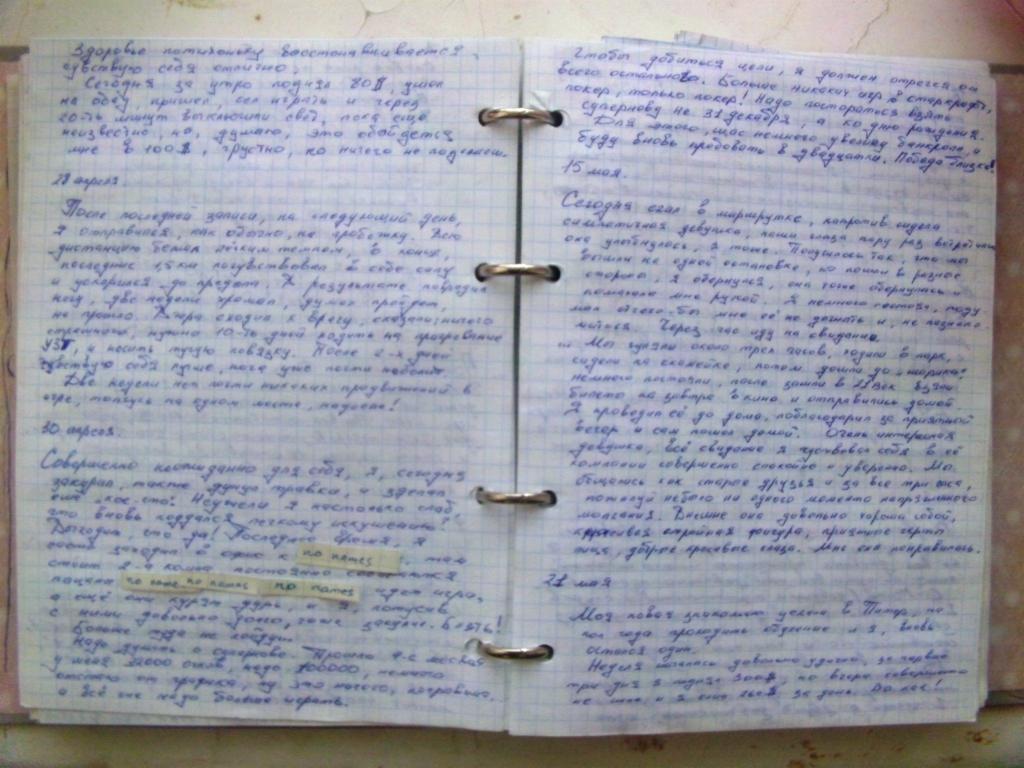 Здоровье потихоньку восстонавливается,
чувствую себя отлично.
Сегодня за утро поднял 80$, ушол
на обед, пришел, сел играть и через
20-ть минут выключили свет, пока ещё
неизвестно, но, думаю, это обойдется
мне в 100$, грустно, но ничего не поделаеш.
28 апреля.
После последней записи, на следующий день,
я отправился, как обычно, на пробежку. Всю
дистанцию бежал лёгким темпом, в конце,
последние 1,5 км почувствовал в себе силу
и ускорился до предела. В результате повредил
ногу, две недели хромал, думал пройдет,
не прошло. Вчера сходил к врачу, сказали, ничего
страшного, нужно 10-ть дней ходить на прогревание
УЗТ, и носить тугую повязку. После 2-х дней
чувствую себя лучше, нога уже почти неболит.
Две недели нет почти никаких продвижений в
игре, топчусь на одном месте, надоело!
30 апреля.
Совершенно неожиданно для себя, я, сегодня
закурил, также дунул травки, и зделал
ещё кое-что! Неужели я настолько слаб,
что вновь поддался легкому искушению?
Выходит, что да! Последнее время, я
часто заходил в офис к по палец, там
стоит 2-а компа, постоянно
пацана по палец по палец идет игра,
а ещё они курят дурь, и я, потусив
с ними довольно долго, тоже закурил. Блять!
Больше туда не пойду.
Надо думать о суперново. Прошло 4-е месяца
у меня 32000 очков, надо 100000, немного
отстаю от графика, ну это ничего, исправимо.
а всё же надо больше играть.
Чтобы добиться цели, я должен отречся от
всего остального. Больше никаких игр в старкрафт,
покер, только покер! Надо постараться взять
суперново не 31 декабря, а ко дню рождения.
Для этого, щас немного увеличу банкролл, и
буду вновь пробовать в двадцатки. Победа близка!
15 мая.
Сегодня ехал в маршрутке, напротив сидела
симпатичная девушка, наши глаза пару раз встретились
она улыбнулась, я тоже. Получилось так, что мы
вышли на одной остановке, но пошли в разные
стороны, я обернулся, она тоже обернулась и
помахала мне рукой. Я немного постоял, поду
мал отчего-бы мне её не догнать и, не познако
миться. Через час иду на свидание.
... Мы гуляли около трех часов, ходили в парк,
сидели на скамейке, потом дошли до "шарика"
немного постояли, после зашли в 21 век взяли
билеты на завтра в кино и отправились домой.
Я проводил её до дома, поблагодарил за приятный
вечер и сам пошел домой. Очень интересная
девушка, всё свидание я чувствовал себя в её
компании совершенно спокойно и уверенно. Мы
общались как старые друзья и за все три часа,
пожалуй небыло ни одного момента напряженного
молчания. Внешне она довольно хороша собой,
красивая стройная фигура, приятные черты
лица, добрые красивые глаза. Мне она понравилась.
21 мая
Моя новая знакомая уехала в Питер, на
пол года проходить обучение и я, вновь
остался один.
Неделя началась довольно удачно, за первые
три дня я поднял 300$, но вчера совершенно
не шло, и я слил за день. Во как!